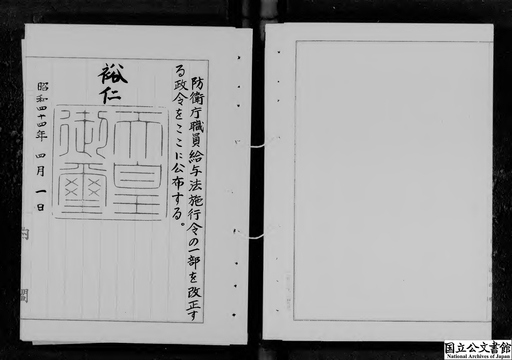 防衛庁職員給与法施行令の一部を改正す
る政令をここに公布する。
裕仁
天皇
御璽
昭和四十四年 四月 一日
内 閣
国立公文書館
National Archives of Japan